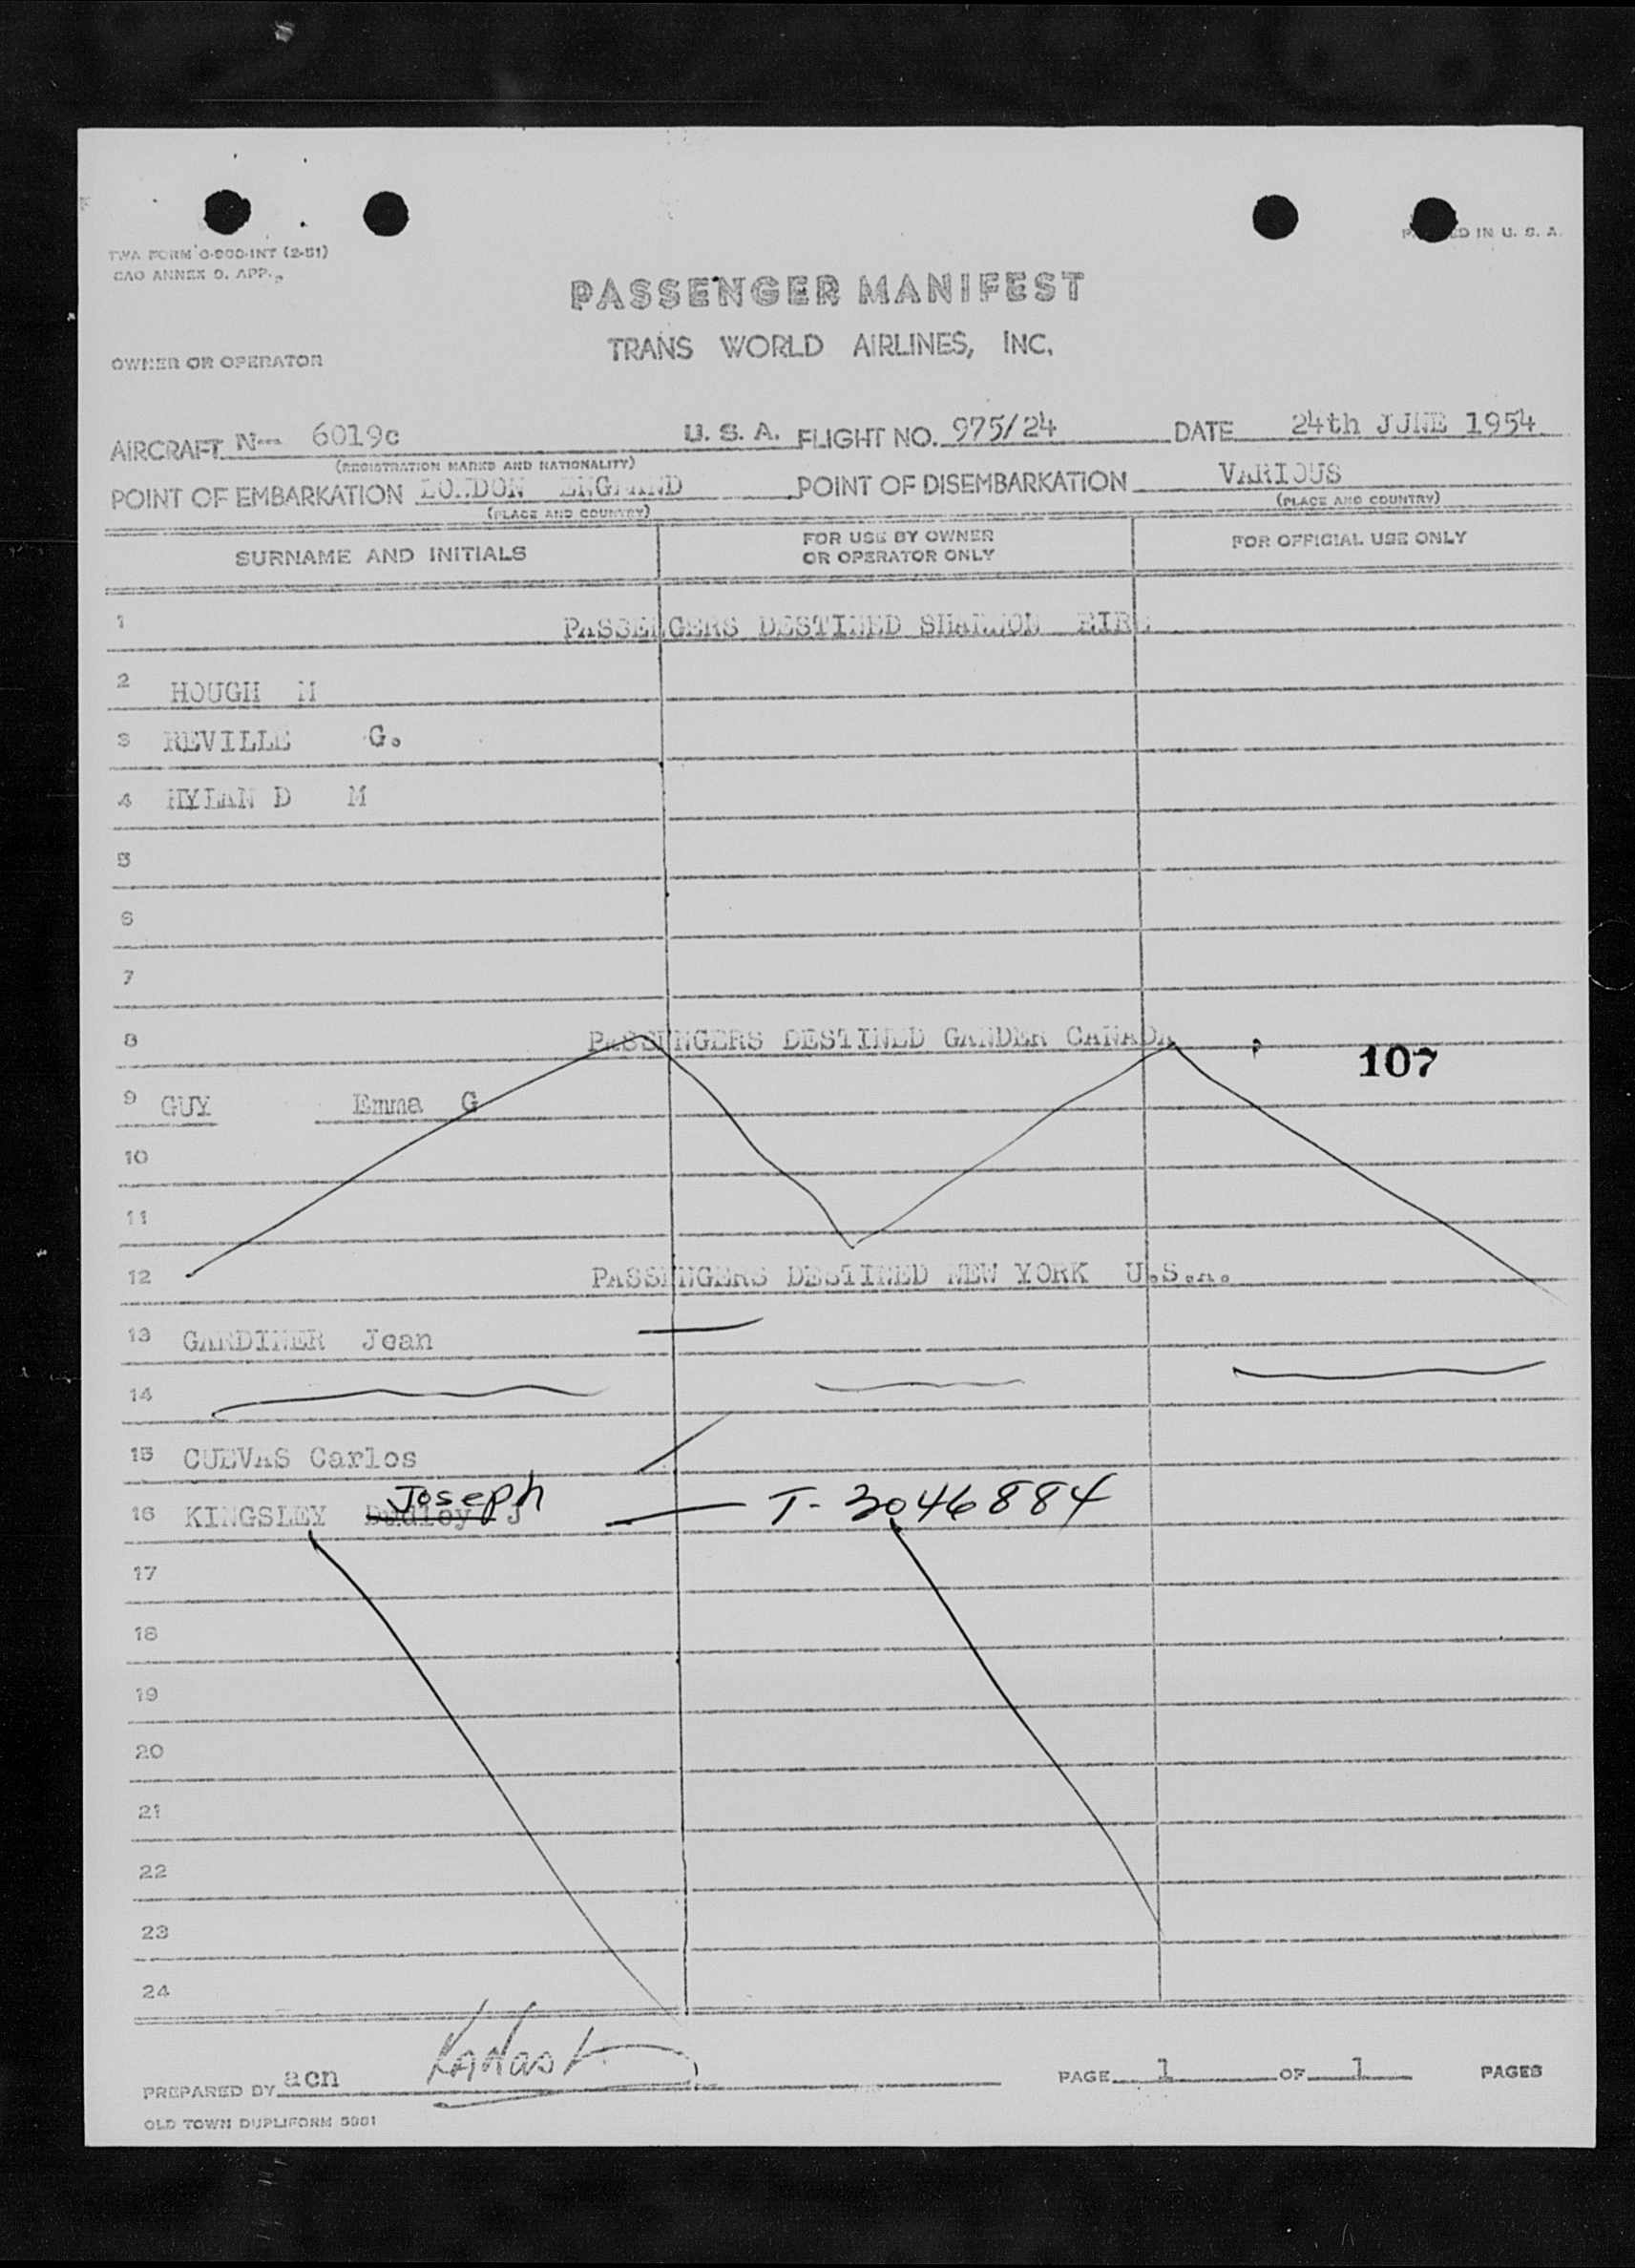 TWA FORM O-900-INT (2-51)
CAO ANNEX 9, APP.
IN U. S. A.
PASSENGER MANIFEST
TRANS WORLD AIRLINES, INC.
OWNER OR OPERATOR
AIRCRAFT N--- 6019c U. S. A. FLIGHT NO. 975/24 DATE 24th JUNE 1954
(REGISTRATION MARKS AND NATIONALITY)
POINT OF EMBARKATION LONDON ENGLAND POINT OF DISEMBARKATION VARIOUS
(PLACE AND COUNTRY) (PLACE AND COUNTRY)
SURNAME AND INITIALS FOR USE BY OWNER OR OPERATOR ONLY FOR OFFICIAL USE ONLY
1 PASSENGERS DESTINED SHANNON EIRE
2 HOUGH M
3 REVILLE G.
4 HYLAN D M
5
6
7
8 PASSENGERS DESTINED GANDER CANADA
107
9 GUY Emma G
10
11
12 PASSENGERS DESTINED NEW YORK U.S.A.
13 GARDINER Jean
14
15 CUEVAS Carlos
16 KINGSLEY Dudley J Joseph T-3046884
17
18
19
20
21
22
23
24
PREPARED BY acn PAGE 1 OF 1 PAGES
OLD TOWN DUPLIFORM 5061